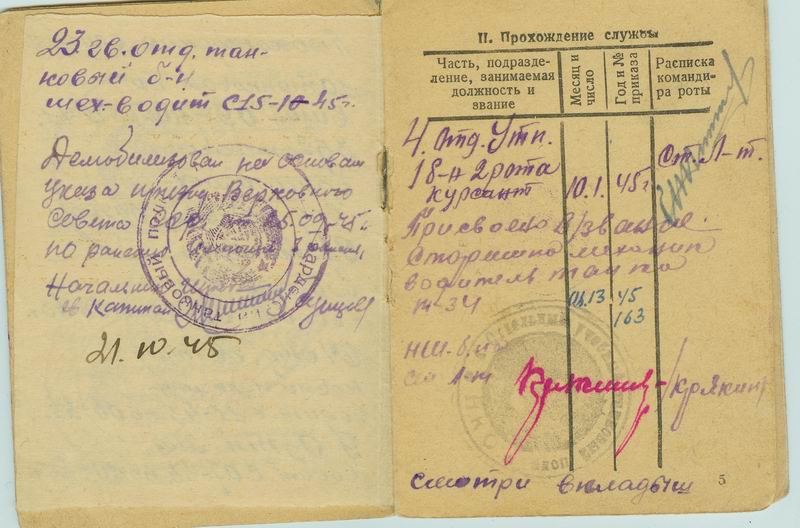 23 гв. отд. тан-
ковый б-н
мех-водит с 15-10-45г.
Демобилизован на основан
указа презид. Верховного
Совета ССР 25.09.45г.
по ранению
Начальник штаба
гв капитан
21.10.45
II. Прохождение службы
Часть, подразде-
ление, занимаемая
должность и
звание
Месяц и
число
Год и №
приказа
Расписка
команди-
ра роты
4. отд. Утп.
1 б-н 2 рота
курсант 10.1. 45г Ст. Л-т.
Присвоено в/звание
Старшина механик
водитель танка
Т-34 45
163
НШ.
ст л-т
смотри вкладыш
5